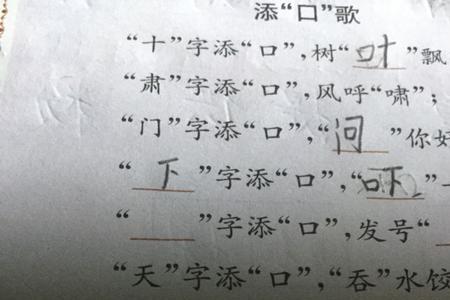 添“口”歌
“十”字添“口”,树“叶”飘
“肃”字添“口”,风呼“啸”;
“门”字添“口”,“问”你好
“下”字添“口”,“吓”一
“ ”字添“口”,发号“
“天”字添“口”,“吞”水饺